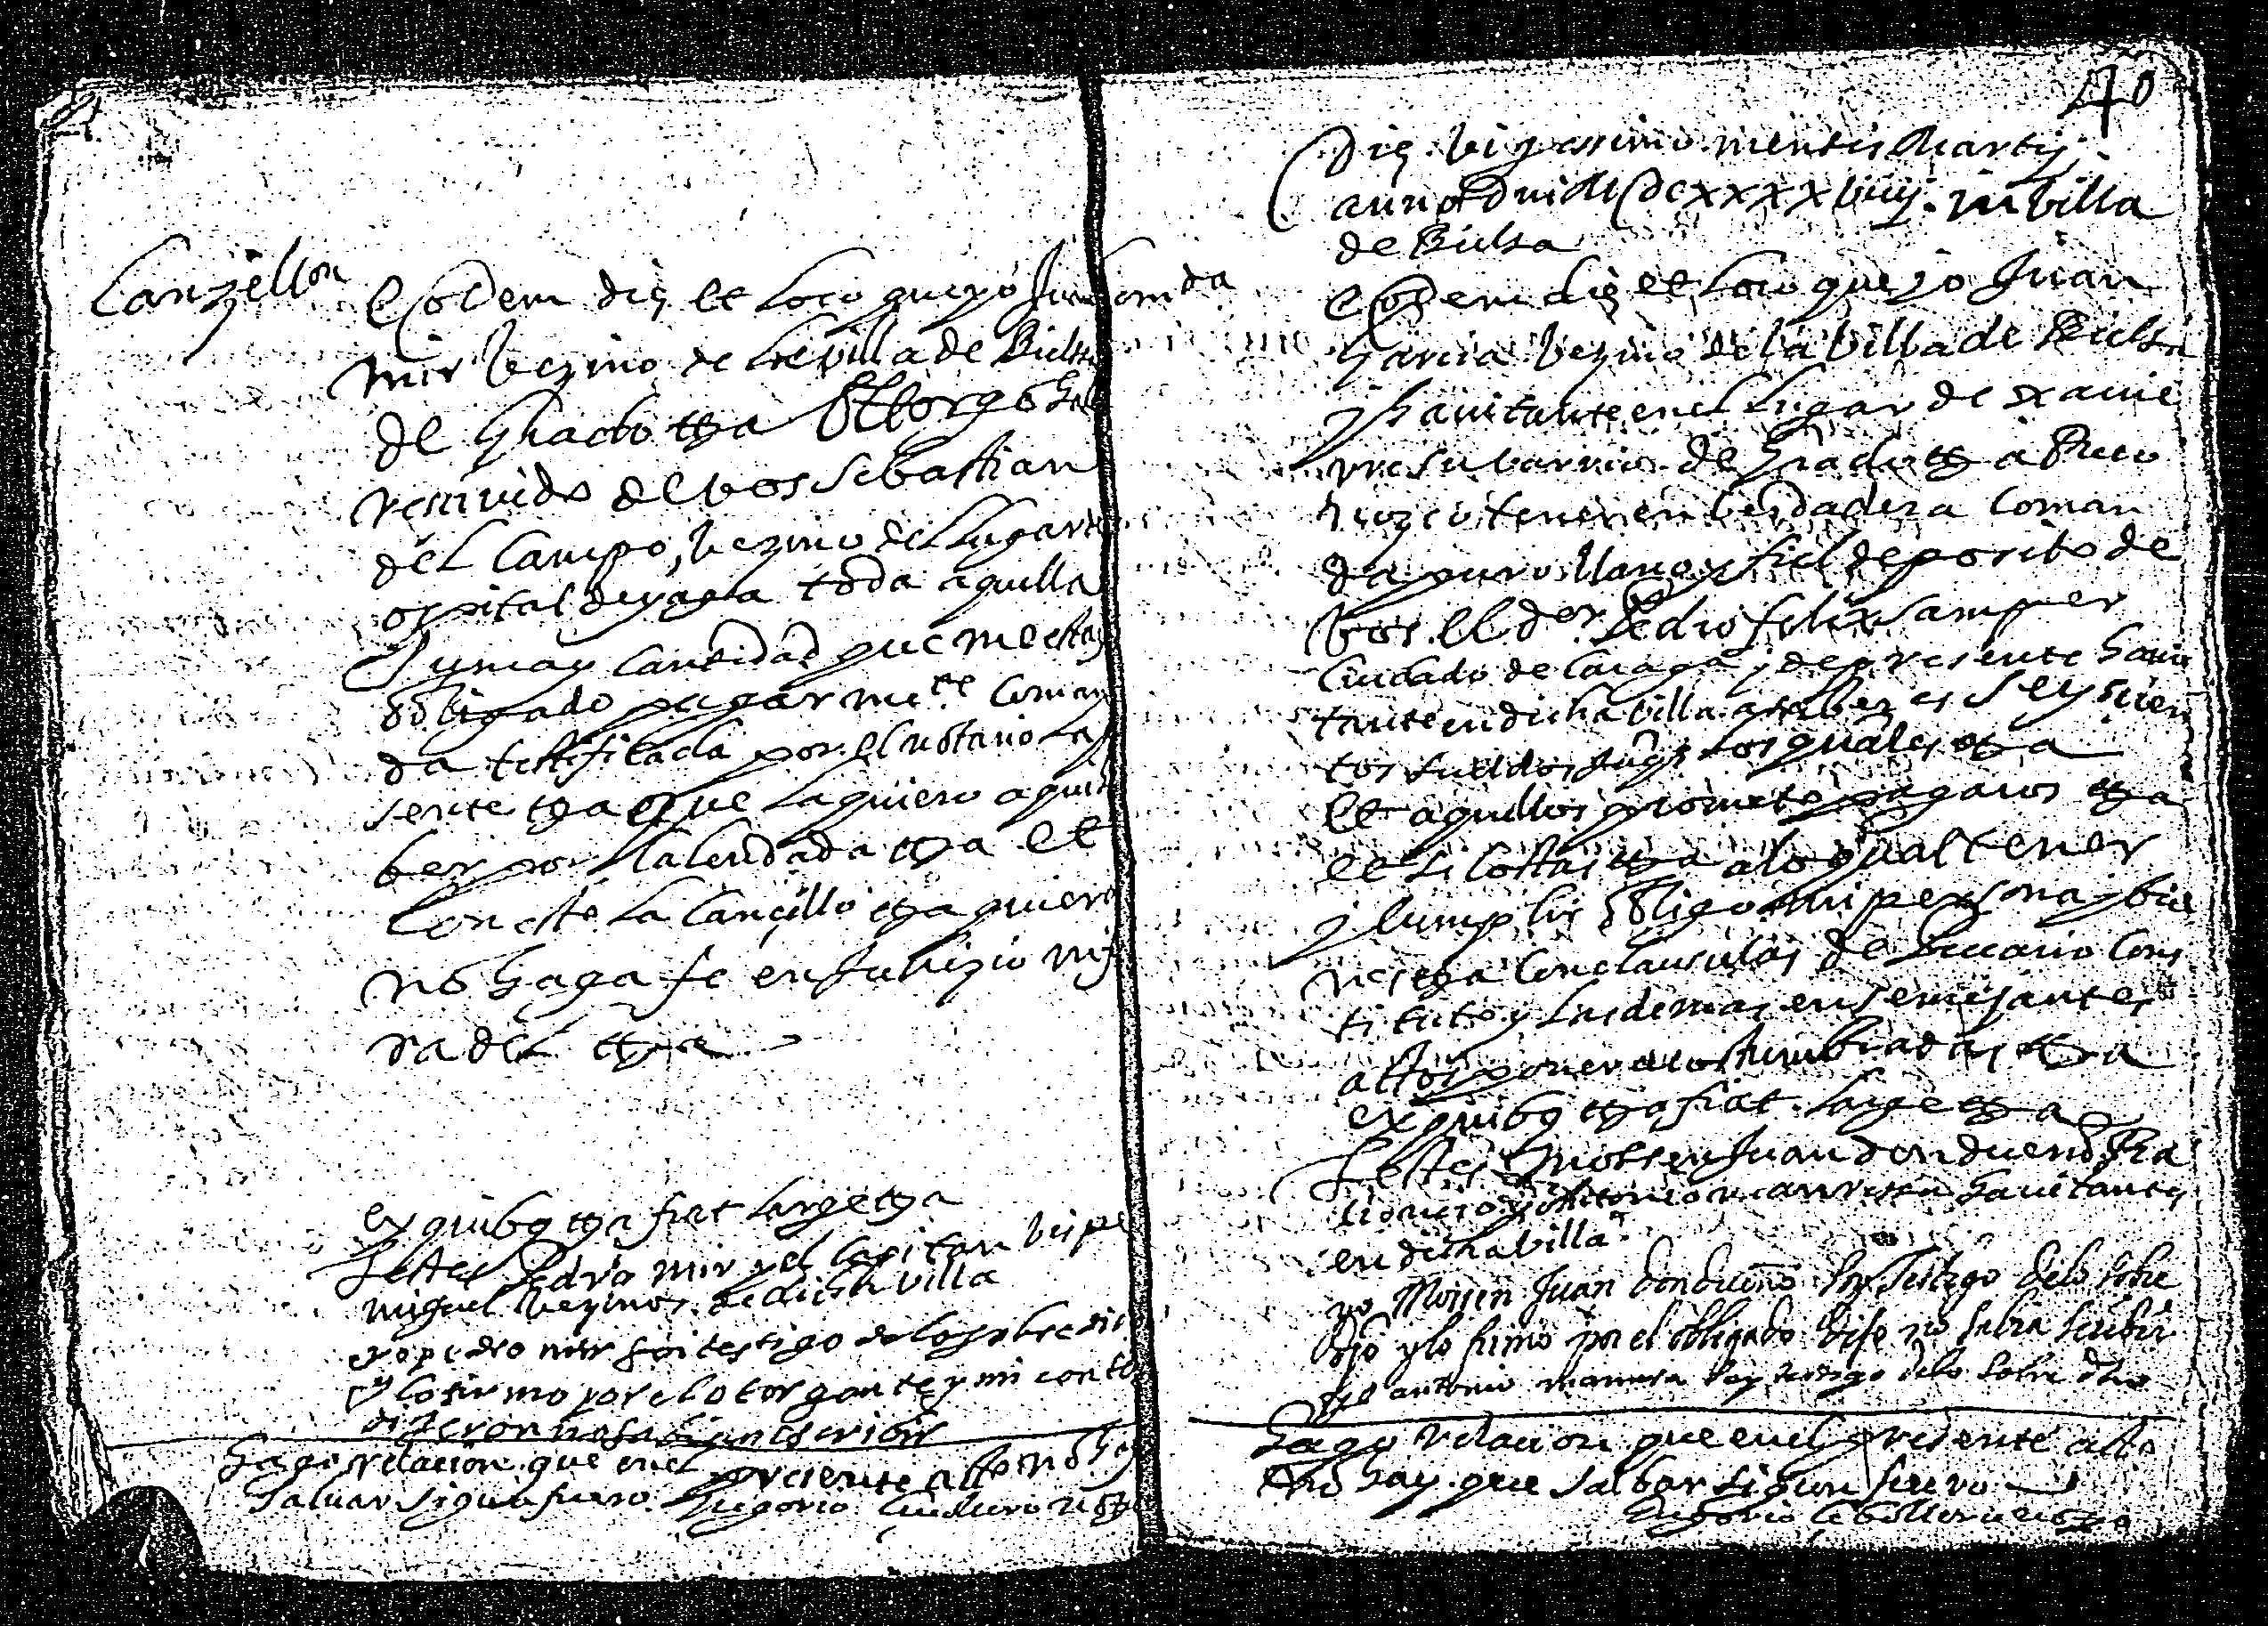 Canzellon
Eodem die et loco que yo Juan
mir vezino de la villa de Bielsa
de Grado etta ottorgo haber
rescivido de vos Sebastian
del Campo, vezino del lugar
ospital de toda aquella
suma y cantidad que me esta
obligado pagar mte coman
da testificada por el notario
sente etta que la quiero aqui
ber por etta et
con este la cancillo etta quiero
no haga fe en Juhizio ni fu
ra del etta
ex quibus etta fiat large etta
Testes Pedro mir y el Capitan
miguel vezinos de dicha villa
yo pedro mir soi testigo de lo sobredicho
y lo firmo por el otorgante y mi conte
dixeron no sabian escribir
Hago relacion que en el presente atto no hay
salvar sigun fuero
40
Die vigessimo mensis Martij
anno Dni MDCxxxxviiij in villa
de Bielsa
Comda
Eodem die et loco que yo Juan
Garcia vezino de la villa de Bielsa
y havitante en el lugar de
su barrio de Grado etta
tener en verdadera coman
da puro llano y fiel deposito de
vos el dor Pedro felix Samper
Ciudado de y de presente havi
tante en dicha villa a saber es seyscien
tos sueldos Jaqs los quales etta
et aquellos prometo pagaros etta
et si costas etta a lo qual tener
y cumplir obligo mi persona y bie
nes etta con clausulas de precario cons
tituto y las demas en semejantes
attos poner acostumbradas etta
ex quibus etta fiat large etta
Testes Mossen Juan Dondueno
y Antonio havitantes
en dicha villa
yo Mossen Juan dondueno soy testigo de lo sobre
dho y lo firmo por el obligado dise no sabia scribir
yo antonio soy testigo de lo sobre dho
Hago relacion que en el presente atto
no hay que salbar sigun fuero